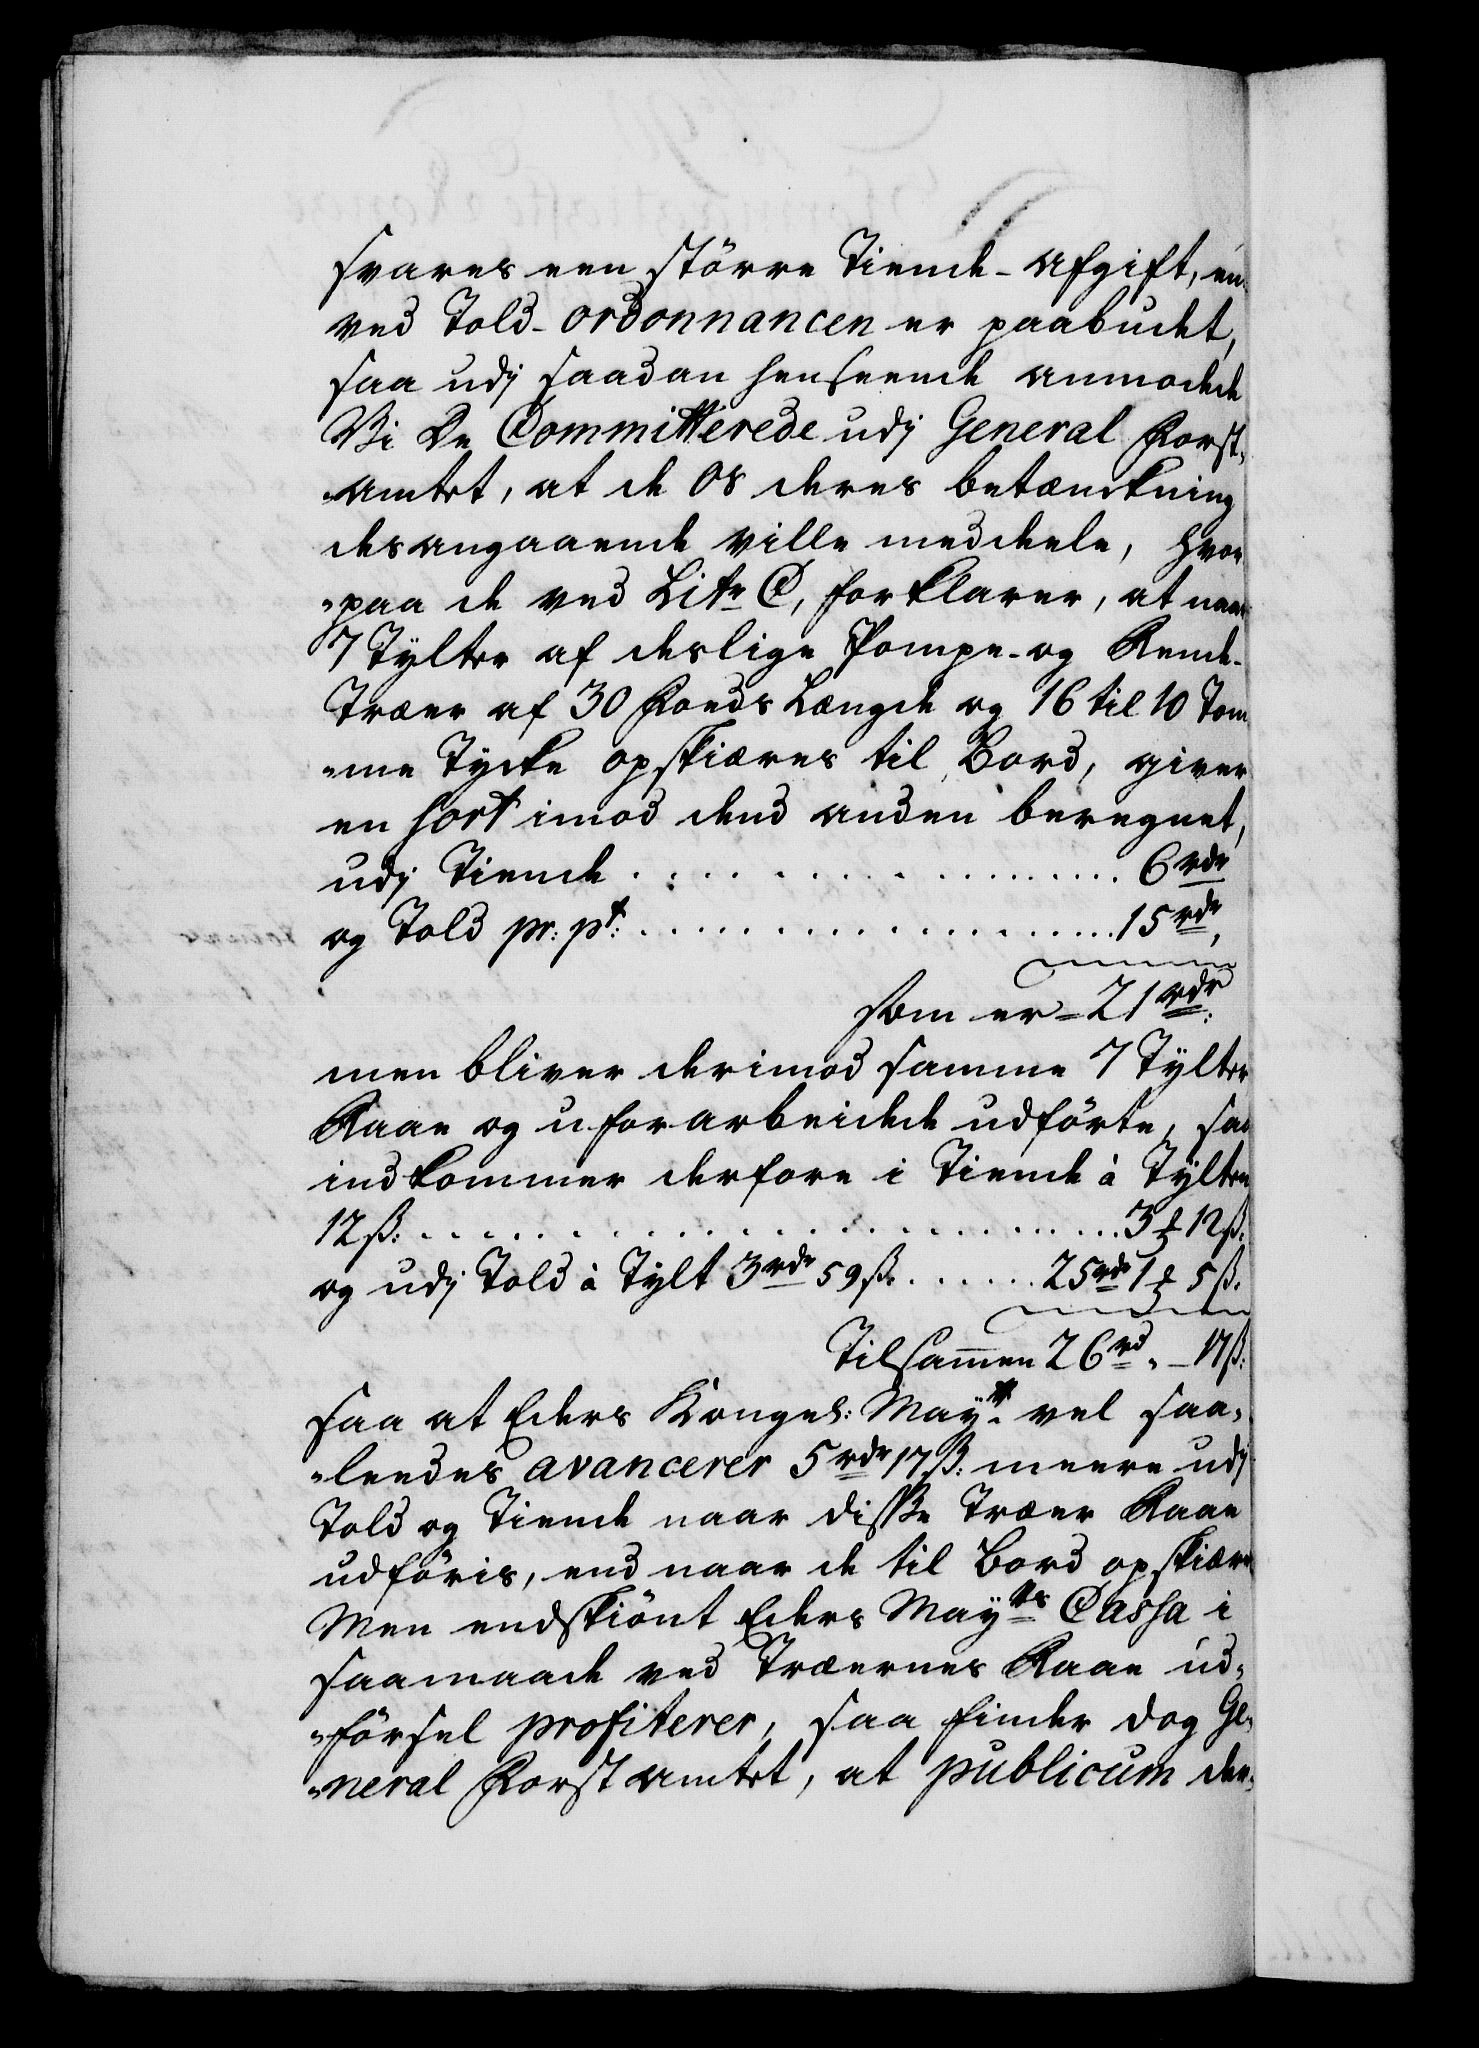 svares een större Tiende-Afgift, en
ved Told-ordonnancen er paabudet,
saa udj saadan henseende anmodede
Vi De Committerede udj General Forst-
"Amtet, at de os deres betænckning
desangaaende ville meddeele, hvor
"paa de ved Litr C, forklarer, at naar
7 Tylter af deslige Pompe- og Rende-
Træer af 30 Foeds Længde og 16 til 10 Tom
"me Tycke opskiæres til Bord, giver
en sort imod dend anden beregnet,
udj Tiende . . . . . . . . . . 6 rdr
og Told pr: pt: . . . . . . . . . . 15 rdr,
som er = 21 rdr:
men bliver derimod samme 7 Tylter
Raae og uforarbeidede udförte, saa
indkommer derfore i Tiende à Tylten
12 ß: . . . . . . . . . . 3 ℔ 12 ß:
og udj Told à Tylt 3 rdr 59 ß: . . . . . . 25 rdr 1 ℔ 5 ß.
Tilsammen 26 rd. - 17 ß:
saa at Eders Kongel: Mayt: vel saa-
"ledes avancerer 5 rdr 17 ß: meere udj
Told og Tiende naar disse Træer Raae
udföris, end naar de til Bord opskiær
Men endskiönt Eders Mayts Cassa i
saamaade ved Træernes Raae ud-
"försel profiterer, saa finder dog Ge-
"neral Forst Amtet, at publicum der-